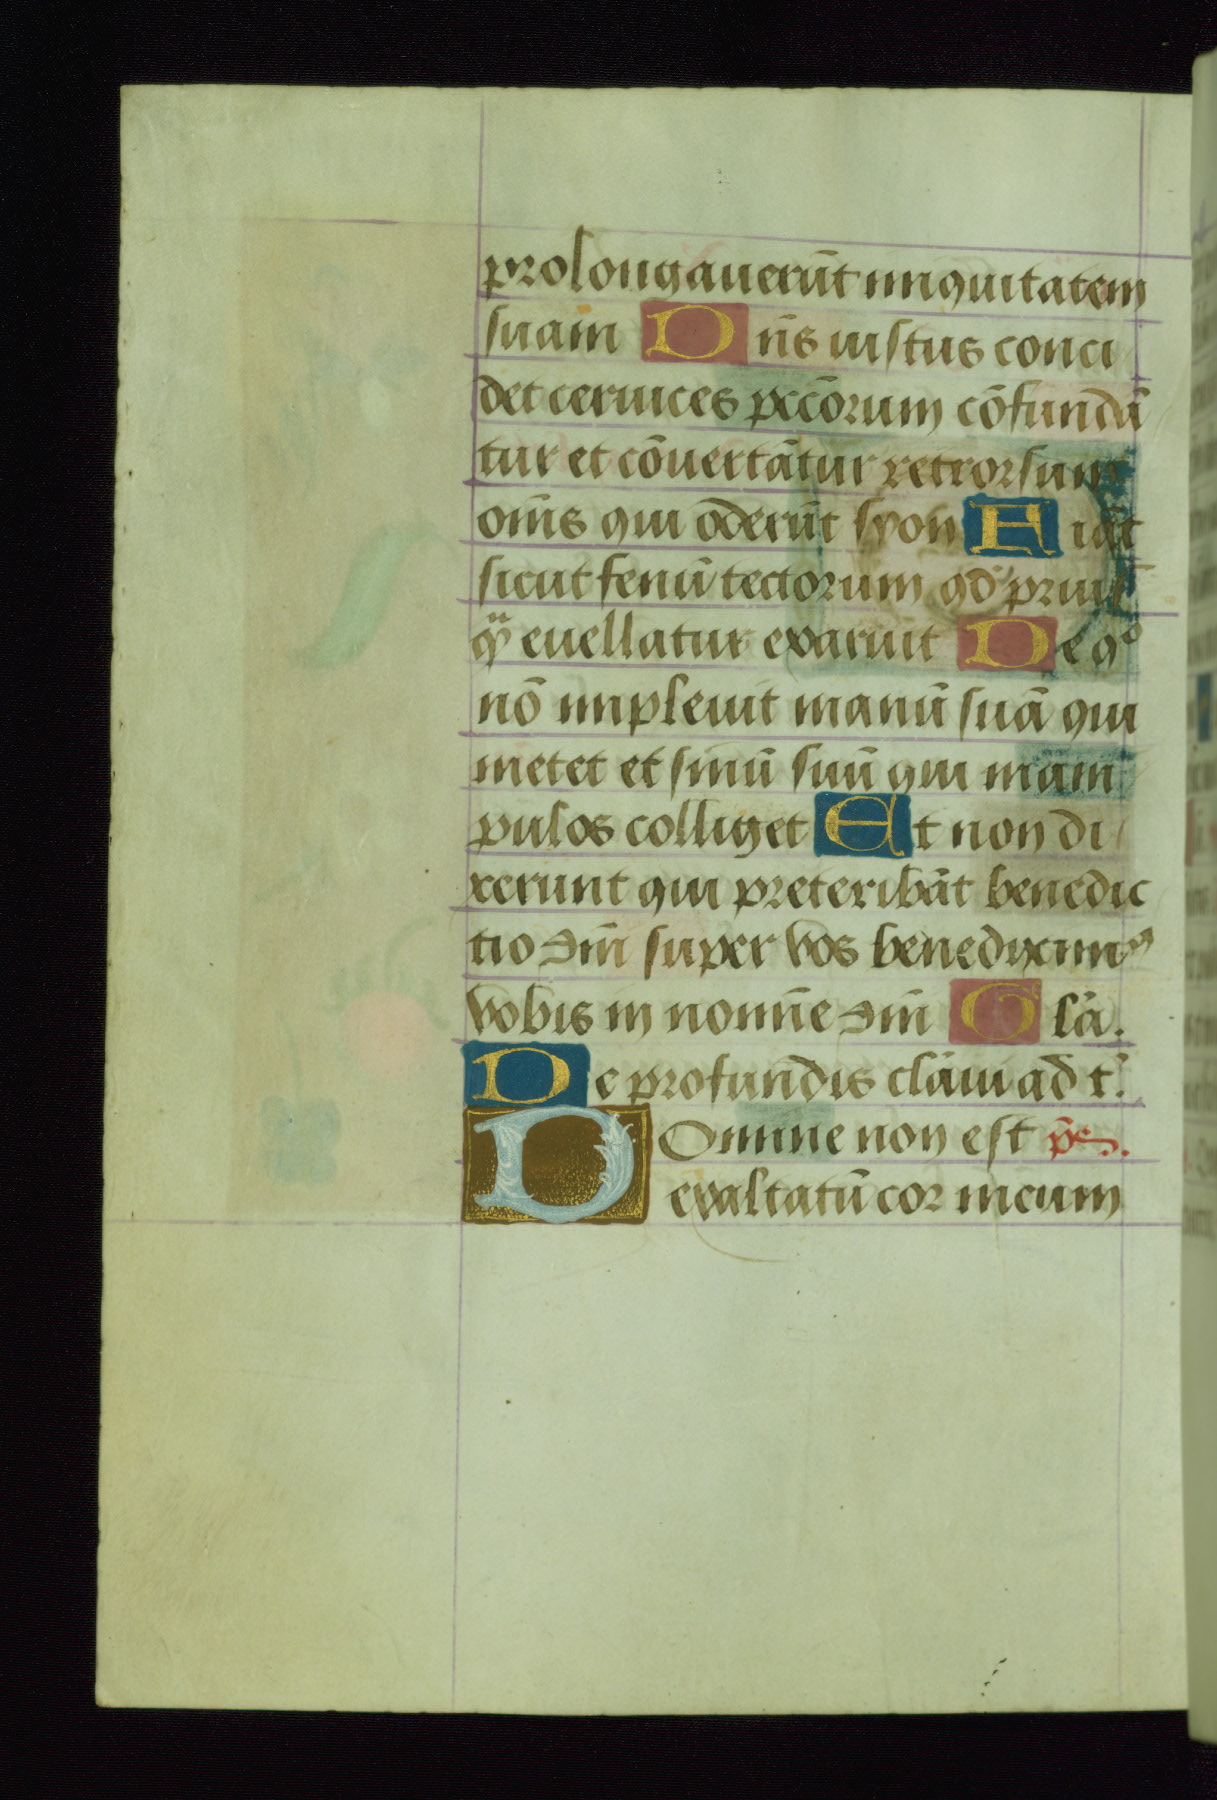 prolongauerūt iniquitatem
suam Dn̄s iustus conci
det ceruices pcc̄orum cōfundā
tur et cōuertātur retrorsum
om̄s qui oderūt syon Fiāt
sicut fenū tectorum qd̄ priuſ
q̄ȝ euellatur exaruit De qº
nō impleuit manū suā qui
metet et sinū suū qui mani
pulos colliget Et non di
xerunt qui preteribāt benedic
tio dn̄i super vos benediximꝰ
vobis in noīne dn̄i Glā.
De profundis clāui ad t.
Domine non est ps̄.
exaltatū cor meum